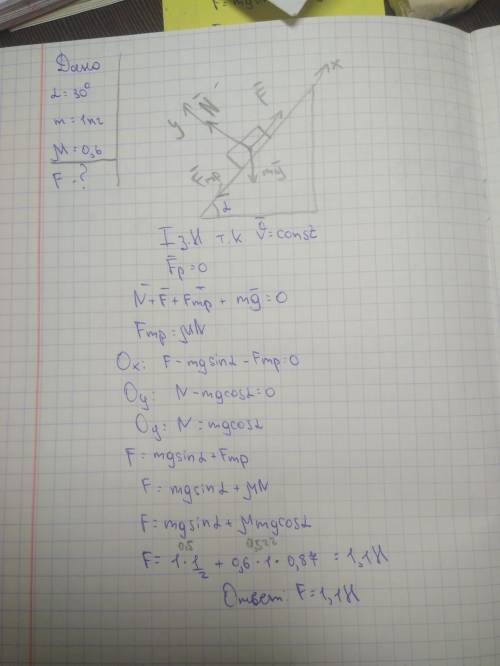 Дано
α = 30°
m = 1кг
μ = 0,6
F - ?
x
F̄
N̄
y
F̄тр
mḡ
α
I з.Н т.к v̄ = const
F̄р = 0
N̄ + F̄ + F̄тр + mḡ = 0
Fтр = μN
Ox: F - mgsinα - Fтр = 0
Oy: N - mgcosα = 0
Oy: N = mgcosα
F = mgsinα + Fтр
F = mgsinα + μN
F = mgsinα + μmgcosα
0,5 0,522
F = 1 · 1/2 + 0,6 · 1 · 0,87 = 1,1Н
Ответ: F = 1,1Н